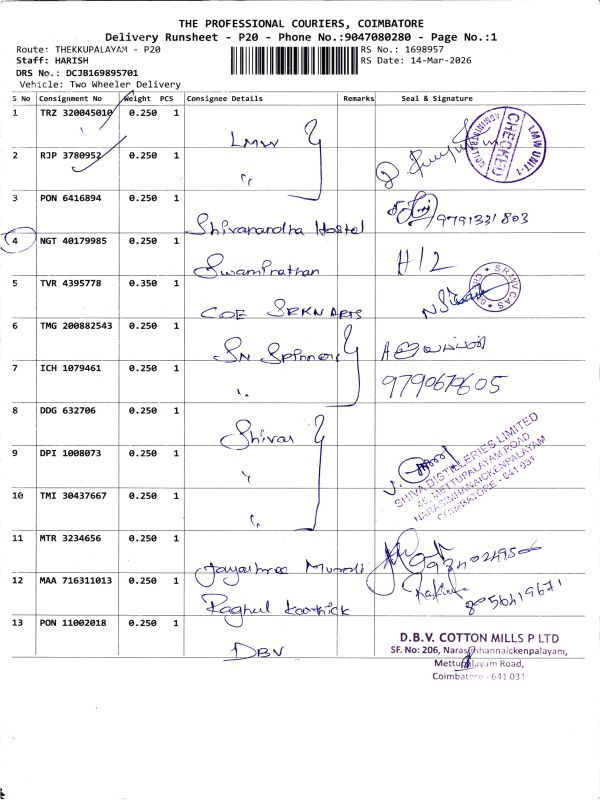 THE PROFESSIONAL COURIERS, COIMBATORE
Delivery Runsheet - P20 - Phone No.:9047080280 - Page No.:1
Route: THEKKUPALAYAM - P20
RS No.: 1698957
Staff: HARISH
RS Date: 14-Mar-2026
DRS No.: DCJB169895701
Vehicle: Two Wheeler Delivery
S No Consignment No Weight PCS Consignee Details Remarks Seal & Signature
1 TRZ 320045010 0.250 1 LMW
LMW UNIT-1 CHECKED
2 RJP 3780952 0.250 1 "
3 PON 6416894 0.250 1 Shivanandha Hostel 9791331803
4 NGT 40179985 0.250 1 Swaminathan H/2
5 TVR 4395778 0.350 1 COE SRKN ARTS
6 TMG 200882543 0.250 1 SN Spinners
7 ICH 1079461 0.250 1 " 9790679605
8 DDG 632706 0.250 1 Shivas
9 DPI 1008073 0.250 1 "
SHIVA DISTILLERIES LIMITED
METTUPALAYAM ROAD
NARASIMHANAICKENPALAYAM
COIMBATORE - 641 031
10 TMI 30437667 0.250 1 "
11 MTR 3234656 0.250 1 Jayashree Murali
12 MAA 716311013 0.250 1 Raghul Karthick 8056419671
13 PON 11002018 0.250 1 DBV
D.B.V. COTTON MILLS P LTD
SF. No: 206, Narasimhannaickenpalayam,
Mettupalayam Road,
Coimbatore - 641 031